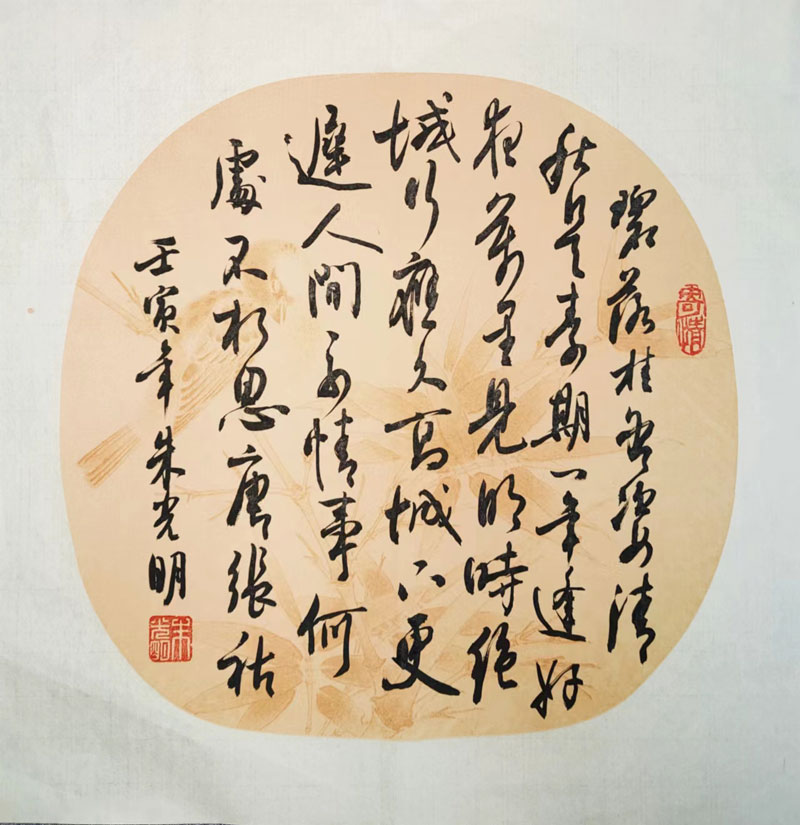 碧落桂含姿清
秋是素期一年逢好
夜萬里見明時絕
域行應久高城下更
遲人間系情事何
處不相思唐張祜
壬寅年朱光明